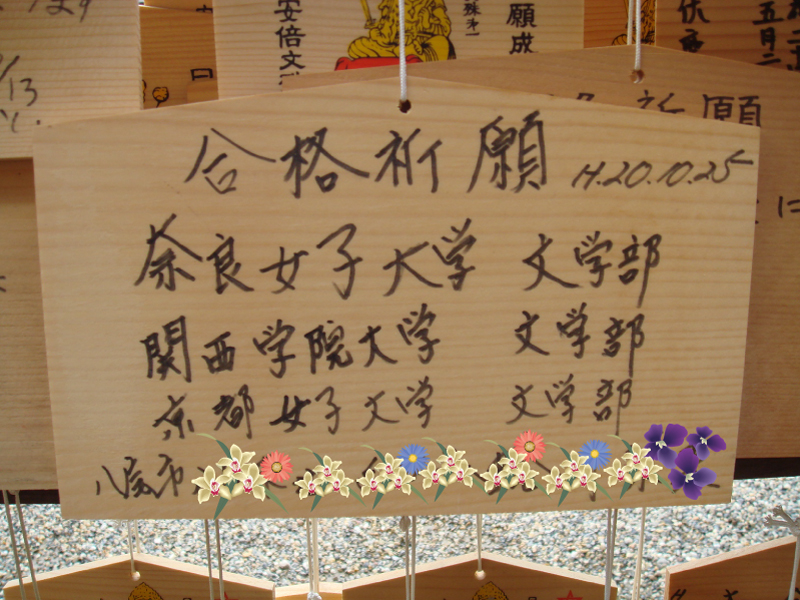 安倍文
願成
五月二
13
祈願
に
合格祈願 H.20.10.25
奈良女子大学 文学部
関西学院大学 文学部
京都女子大学 文学部
八尾市